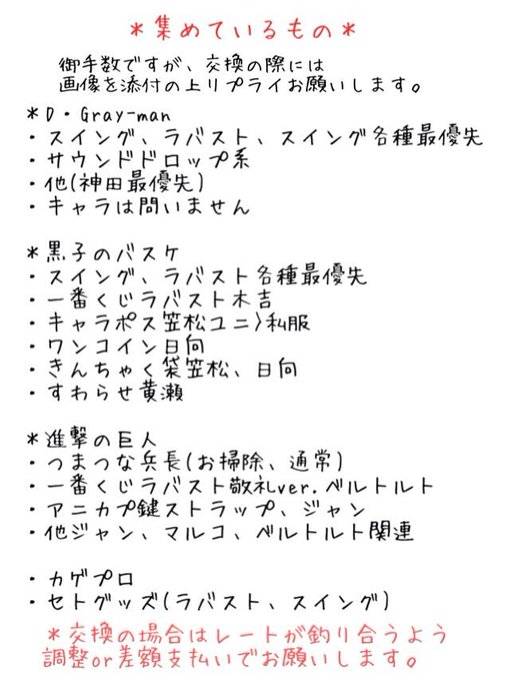 *集めているもの*
御手数ですが、交換の際には
画像を添付の上リプライお願いします。
*D・Gray-man
・スイング、ラバスト、スイング各種最優先
・サウンドドロップ系
・他(神田最優先)
・キャラは問いません
*黒子のバスケ
・スイング、ラバスト各種最優先
・一番くじラバスト木吉
・キャラポス笠松ユニ>私服
・ワンコイン日向
・きんちゃく袋笠松、日向
・すわらせ黄瀬
*進撃の巨人
・つまつな兵長(お掃除、通常)
・一番くじラバスト敬礼ver.ベルトルト
・アニカプ鍵ストラップ、ジャン
・他ジャン、マルコ、ベルトルト関連
・カゲプロ
・セトグッズ(ラバスト、スイング)
*交換の場合はレートが釣り合うよう
調整or差額支払いでお願いします。